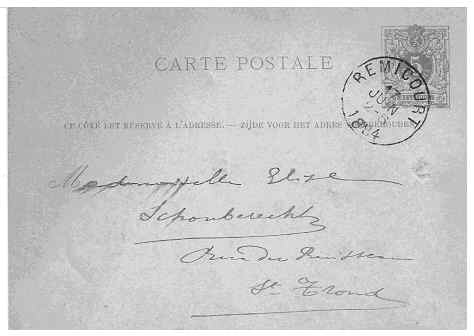 CARTE POSTALE
5
REMICOURT
17
JUIN
1884
CE CÔTÉ EST RÉSERVÉ A L'ADRESSE. — ZIJDE VOOR HET ADRES
Mademoiselle Elise
Schonberechts
Rue du Ruisseau
St Trond